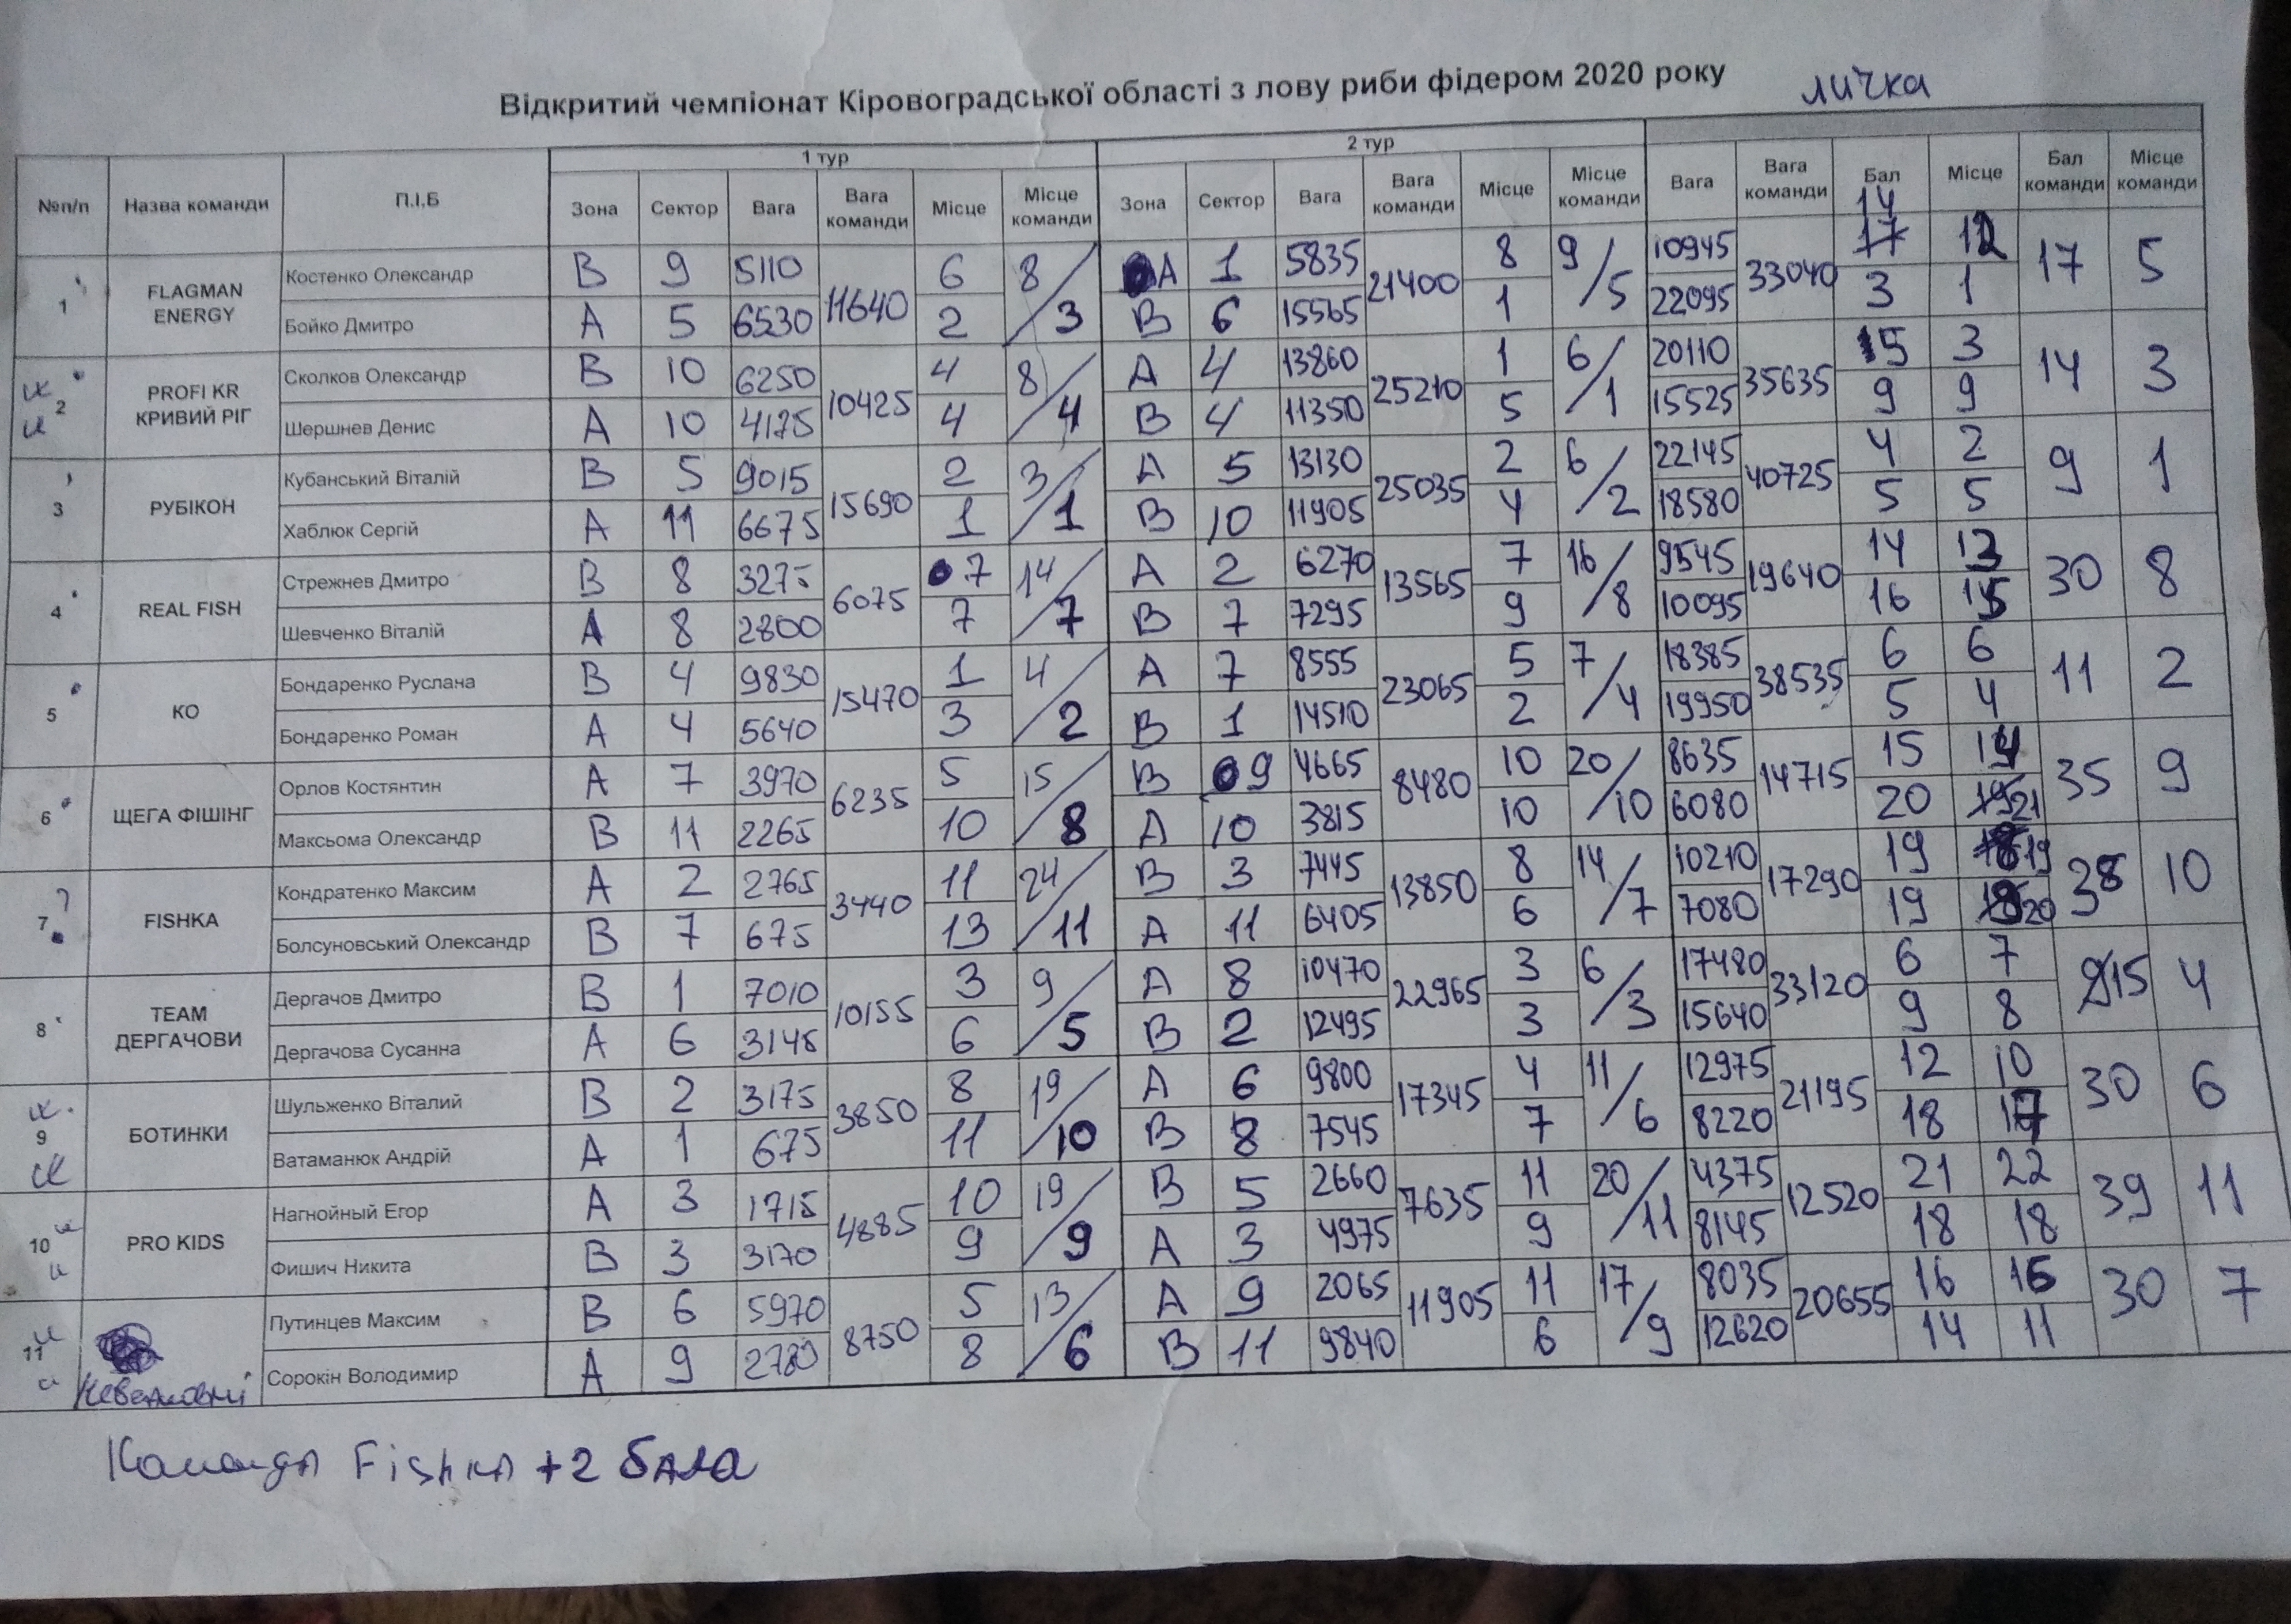 Відкритий чемпіонат Кіровоградської області з лову риби фідером 2020 року личка
№п/п Назва команди П.І.Б 1 тур 2 тур
Зона Сектор Вага Вага команди Місце Місце команди Зона Сектор Вага Вага команди Місце Місце команди Вага Вага команди Бал Місце Бал команди Місце команди
1 FLAGMAN ENERGY Костенко Олександр B 9 5110 11640 6 8/3 A 1 5835 21400 8 9/5 10945 33040 17 14 12 17 5
Бойко Дмитро A 5 6530 2 B 6 15565 1 22095 3 1
2 PROFI KR КРИВИЙ РІГ Сколков Олександр B 10 6250 10425 4 8/4 A 4 13860 25210 1 6/1 20110 35635 5 3 14 3
Шершнев Денис A 10 4175 4 B 4 11350 5 15525 9 9
3 РУБІКОН Кубанський Віталій B 5 9015 15690 2 3/1 A 5 13130 25035 2 6/2 22145 40725 4 2 9 1
Хаблюк Сергій A 11 6675 1 B 10 11905 4 18580 5 5
4 REAL FISH Стрежнев Дмитро B 8 3275 6075 7 14/7 A 2 6270 13565 7 16/8 9545 19640 14 13 30 8
Шевченко Віталій A 8 2800 7 B 7 7295 9 10095 16 15
5 КО Бондаренко Руслана B 4 9830 15470 1 4/2 A 7 8555 23065 5 7/4 18385 38535 6 6 11 2
Бондаренко Роман A 4 5640 3 B 1 14510 2 19950 5 4
6 ЩЕГА ФІШІНГ Орлов Костянтин A 7 3970 6235 5 15/8 B 9 4665 8480 10 20/10 8635 14715 15 14 35 9
Максьома Олександр B 11 2265 10 A 10 3815 10 6080 20 19 21
7 FISHKA Кондратенко Максим A 2 2765 3440 11 24/11 B 3 7445 13850 8 14/7 10210 17290 19 19 38 10
Болсуновський Олександр B 7 675 13 A 11 6405 6 7080 19 20
8 TEAM ДЕРГАЧОВИ Дергачов Дмитро B 1 7010 10155 3 9/5 A 8 10470 22965 3 6/3 17480 33120 6 7 15 4
Дергачова Сусанна A 6 3145 6 B 2 12495 3 15640 9 8
9 БОТИНКИ Шульженко Віталий B 2 3175 3850 8 19/10 A 6 9800 17345 4 11/6 12975 21195 12 10 30 6
Ватаманюк Андрій A 1 675 11 B 8 7545 7 8220 18 17
10 PRO KIDS Нагнойный Егор A 3 1715 4885 10 19/9 B 5 2660 7635 11 20/11 4375 12520 21 22 39 11
Фишич Никита B 3 3170 9 A 3 4975 9 8145 18 18
11 Путинцев Максим B 6 5970 8750 5 13/6 A 9 2065 11905 11 17/9 8035 20655 16 16 30 7
Сорокін Володимир A 9 2780 8 B 11 9840 6 12620 14 11
Команда Fishka +2 бала